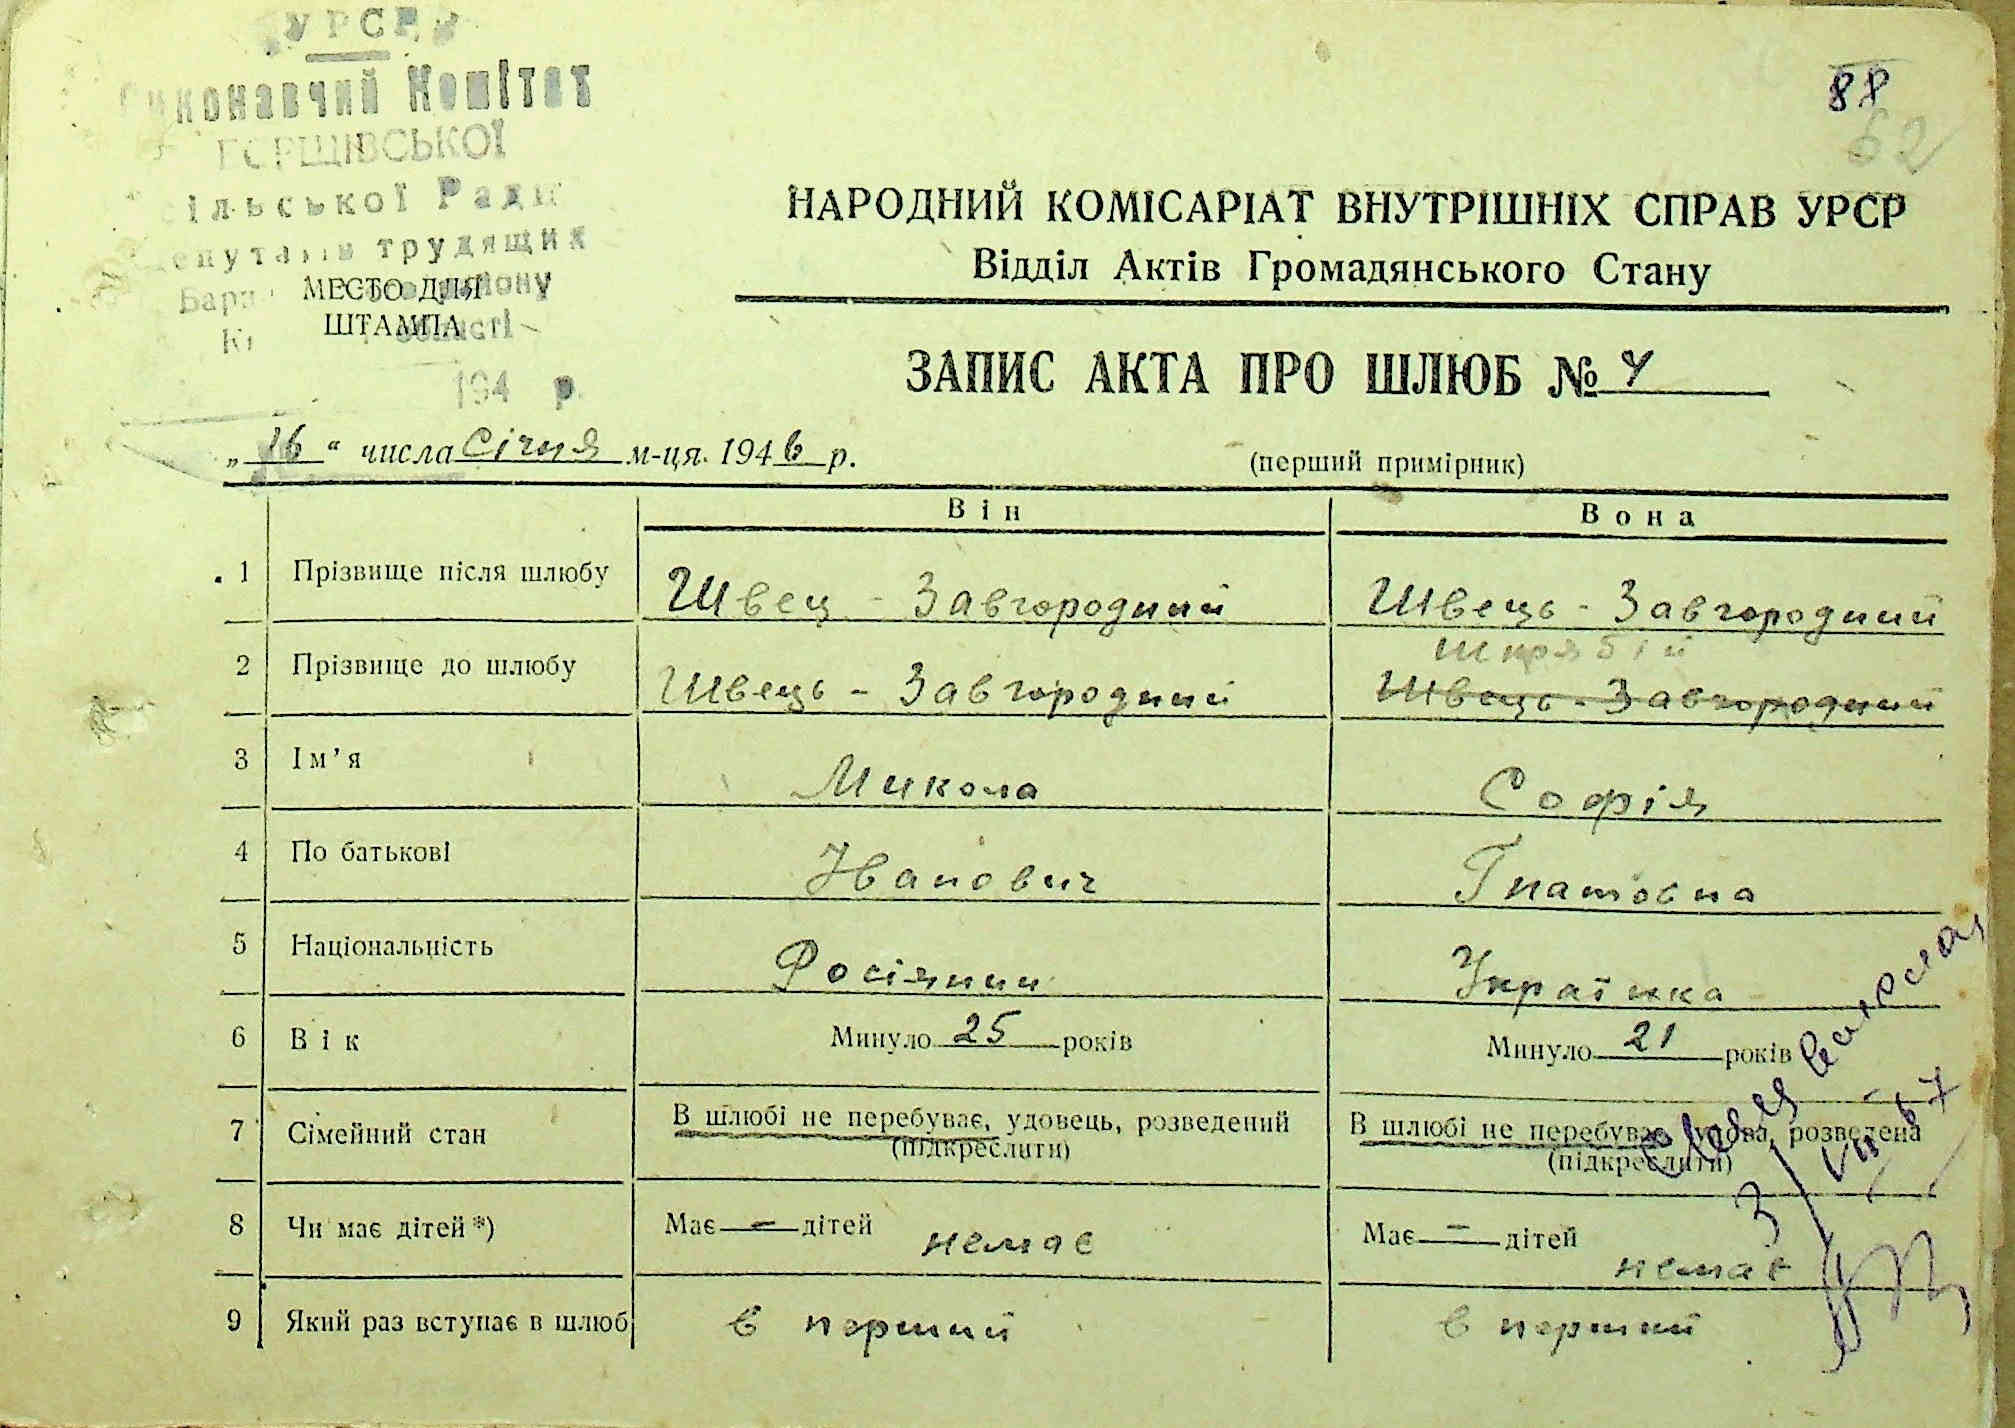 УРСР
Виконавчий Комітет
ГОРЩІВСЬКОЇ
сільської Ради
депутатів трудящих
МЕСТО ДЛЯ
ШТАМПА
194 р.
88
62
НАРОДНИЙ КОМІСАРІАТ ВНУТРІШНІХ СПРАВ УРСР
Відділ Актів Громадянського Стану
ЗАПИС АКТА ПРО ШЛЮБ № 4
„16“ числа Січня м-ця 1946 р.
(перший примірник)
Він Вона
1 Прізвище після шлюбу Швец - Завгородний Швець - Завгородний
Шкрябій
2 Прізвище до шлюбу Швець - Завгородний Швець - Завгородний
3 Ім’я Микола Софія
4 По батькові Иванович Гнатовна
5 Національність Росіянин Українка
6 Вік Минуло 25 років Минуло 21 років
7 Сімейний стан В шлюбі не перебуває, удовець, розведений В шлюбі не перебуває, удова, розведена
(підкреслити) (підкреслити)
8 Чи має дітей *) Має — дітей немає Має — дітей немає
9 Який раз вступає в шлюб в перший в перший